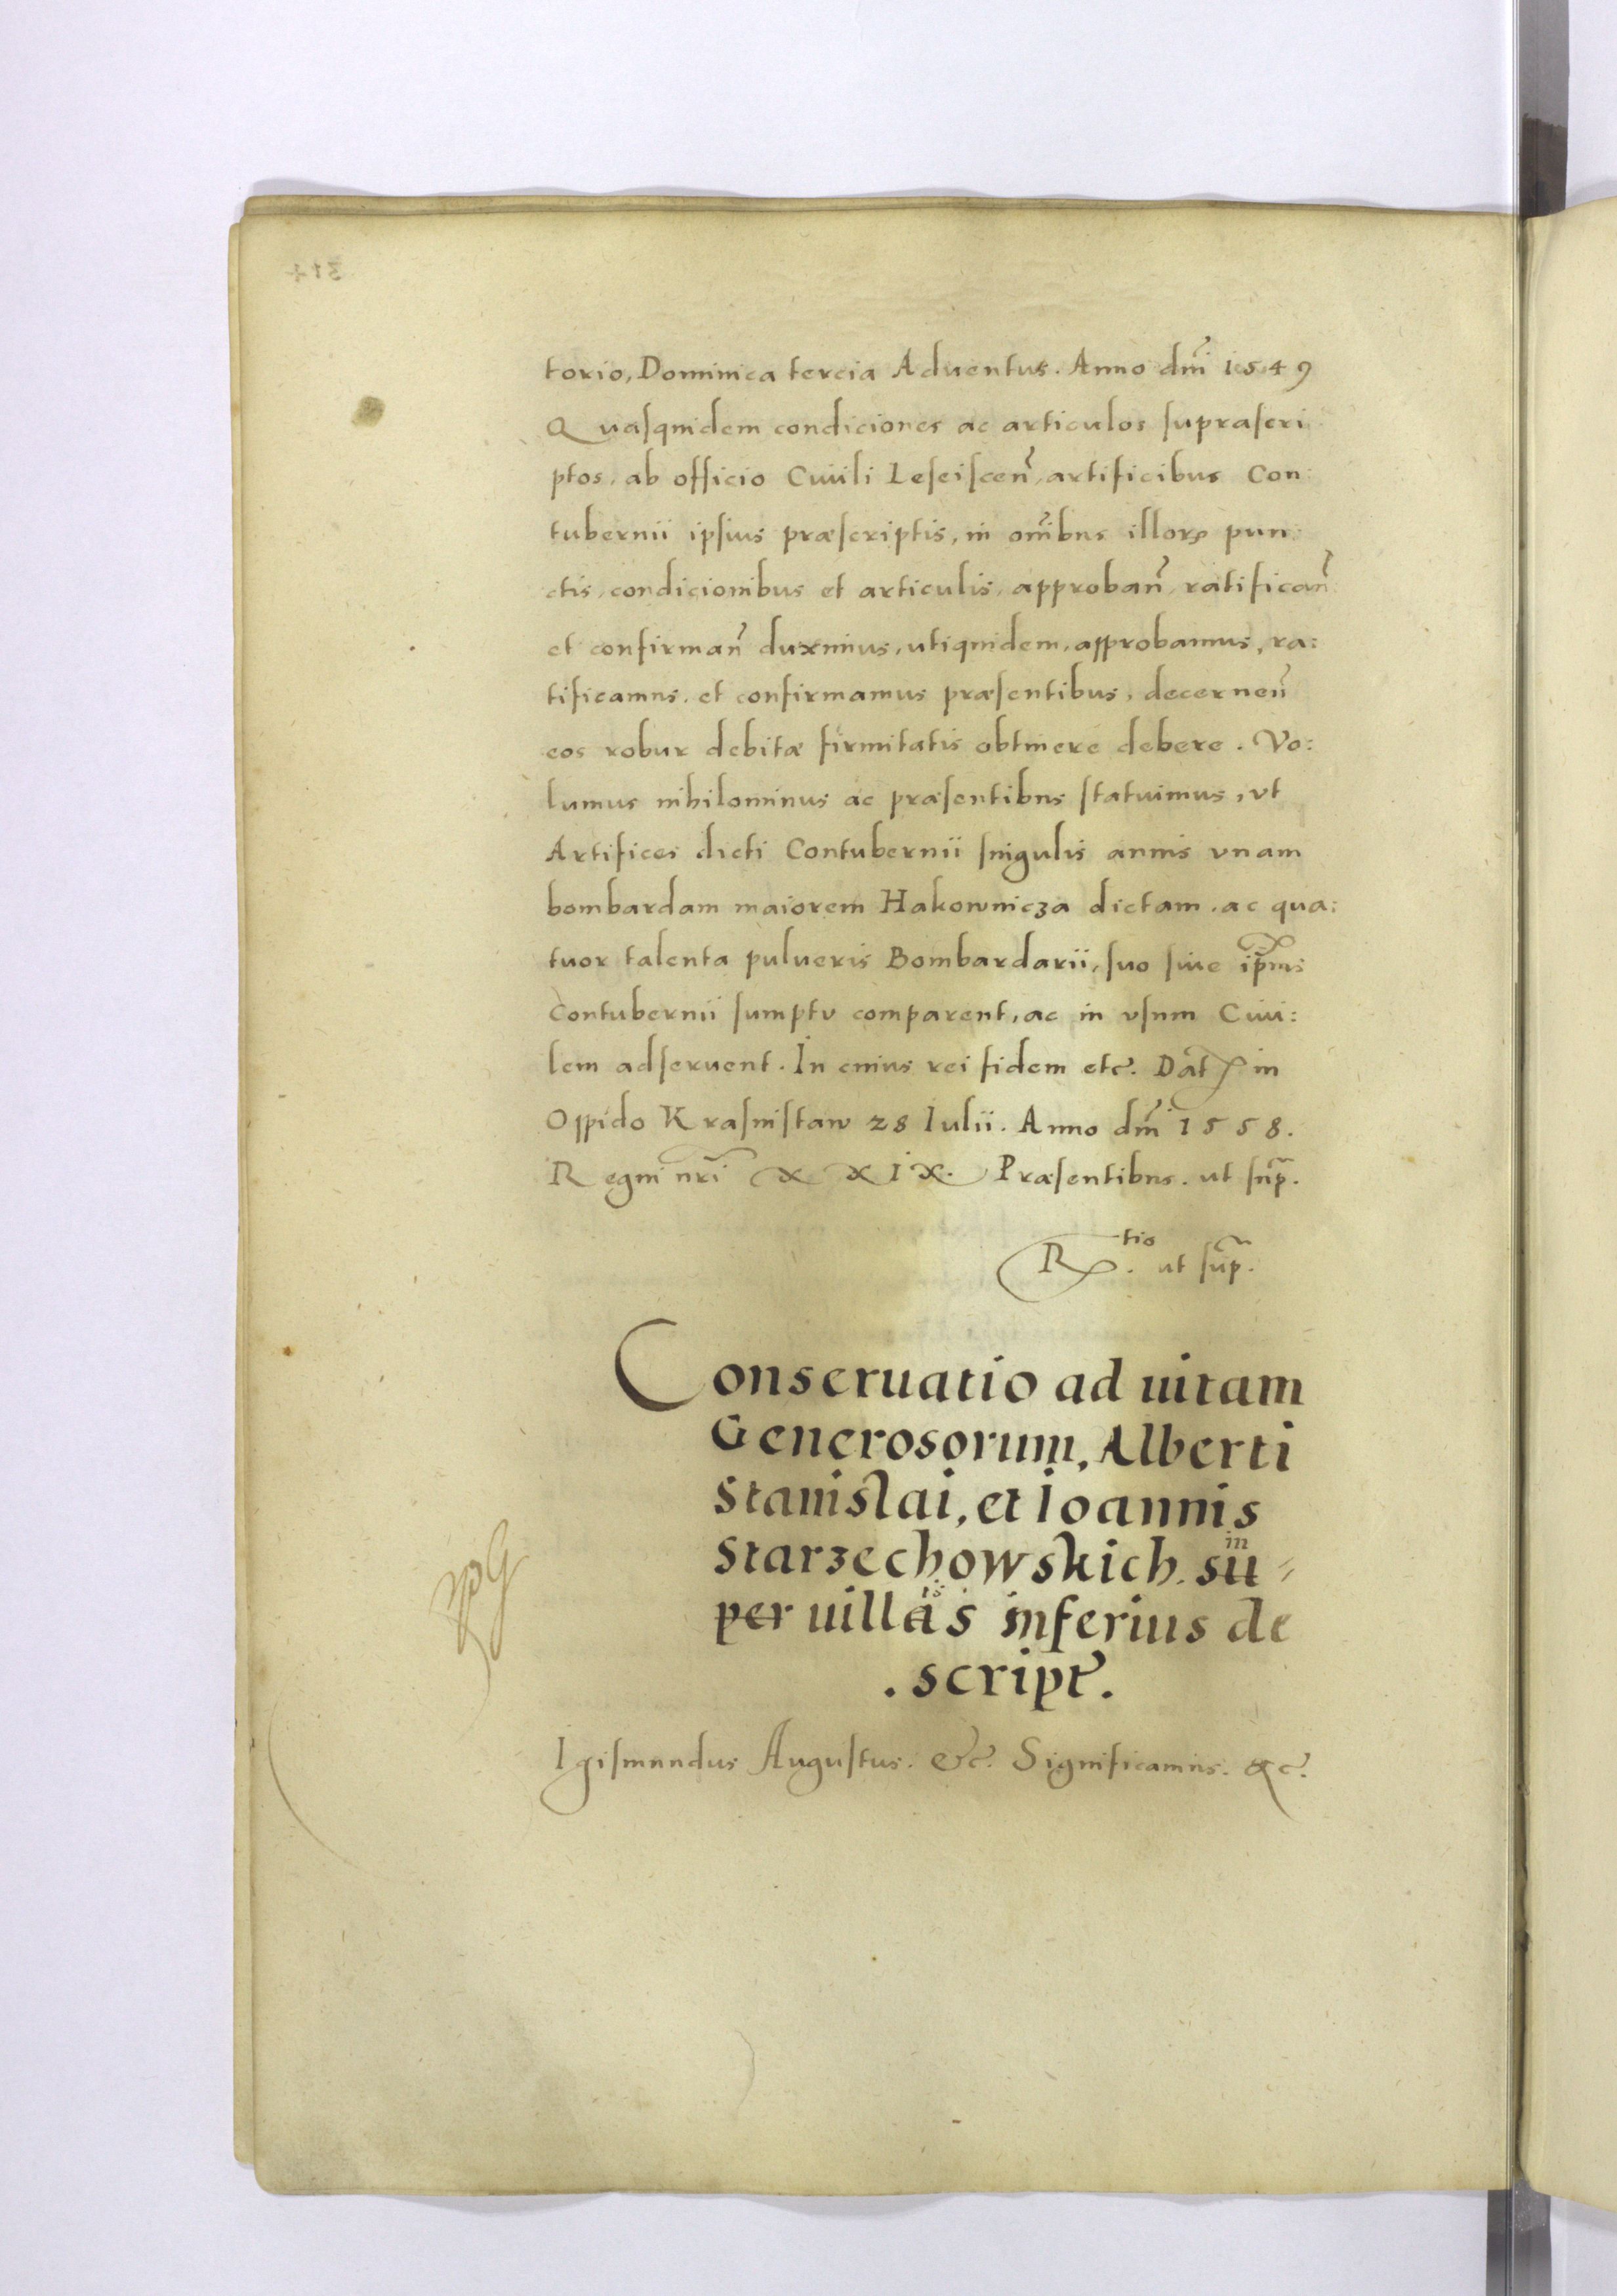 torio, Dominica tercia Aduentus. Anno dm̃i 1549
Quasquidem condiciones ac articulos suprascri
ptos, ab officio Ciuili Leseiscen̄, artificibus Con:
tubernii ipsius præscriptis, in om̃ibus illorꝝ pun:
ctis, condicionibus et articulis, approban̄, ratifican̄
et confirman̄ duximus, utiquidem, approbamus, ra:
tificamus, et confirmamus præsentibus, decernen̄
eos robur debitæ firmitatis obtinere debere. Vo:
lumus nihilominus ac præsentibus statuimus, vt
Artifices dicti Contubernii singulis annis vnam
bombardam maiorem Hakownicza dictam, ac qua:
tuor talenta pulueris Bombardarii, suo siue ip̃ius
Contubernii sumptu comparent, ac in vsum Ciui:
lem adseruent. In cuius rei fidem etc. Dat̃ in
Oppido Krasnistaw 28 Iulii. Anno dm̃i 1558.
Regni nr̃i XXIX. Præsentibus. ut sup̃.
R tio. ut sup̃.
Conseruatio ad uitam
Generosorum, Alberti
Stanislai, et Ioannis
Starzechowskich. su in
per uillas is inferius de
. script̃.
Igismundus Augustus. &c. Significamus. &c.